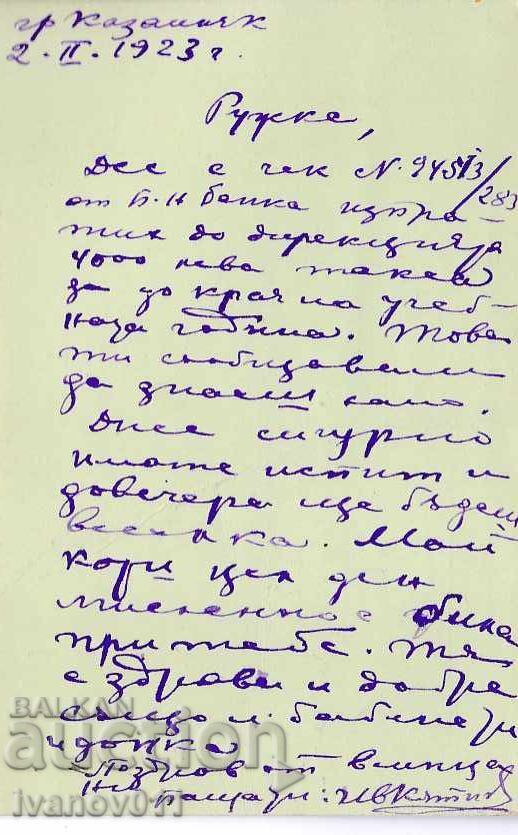 гр Казанлък
2 · II · 1923 г.
Ружке,
Днес с чек N. 94513/283
от Б. Н банка изпра-
тих до дирекцията
4000 лева такса
за до края на учеб-
ната година. Това
ти съобщавам
да знаеш само.
Днес сигурно
имате изпит и
довечера ще бъдеш
весела. Май
цел ден
мисленно е била
при тебе. Тя
е здрава и добре
също и бабинези
и донка
Поздрав от всинца
ни
BALKAN
auction
ivanov011